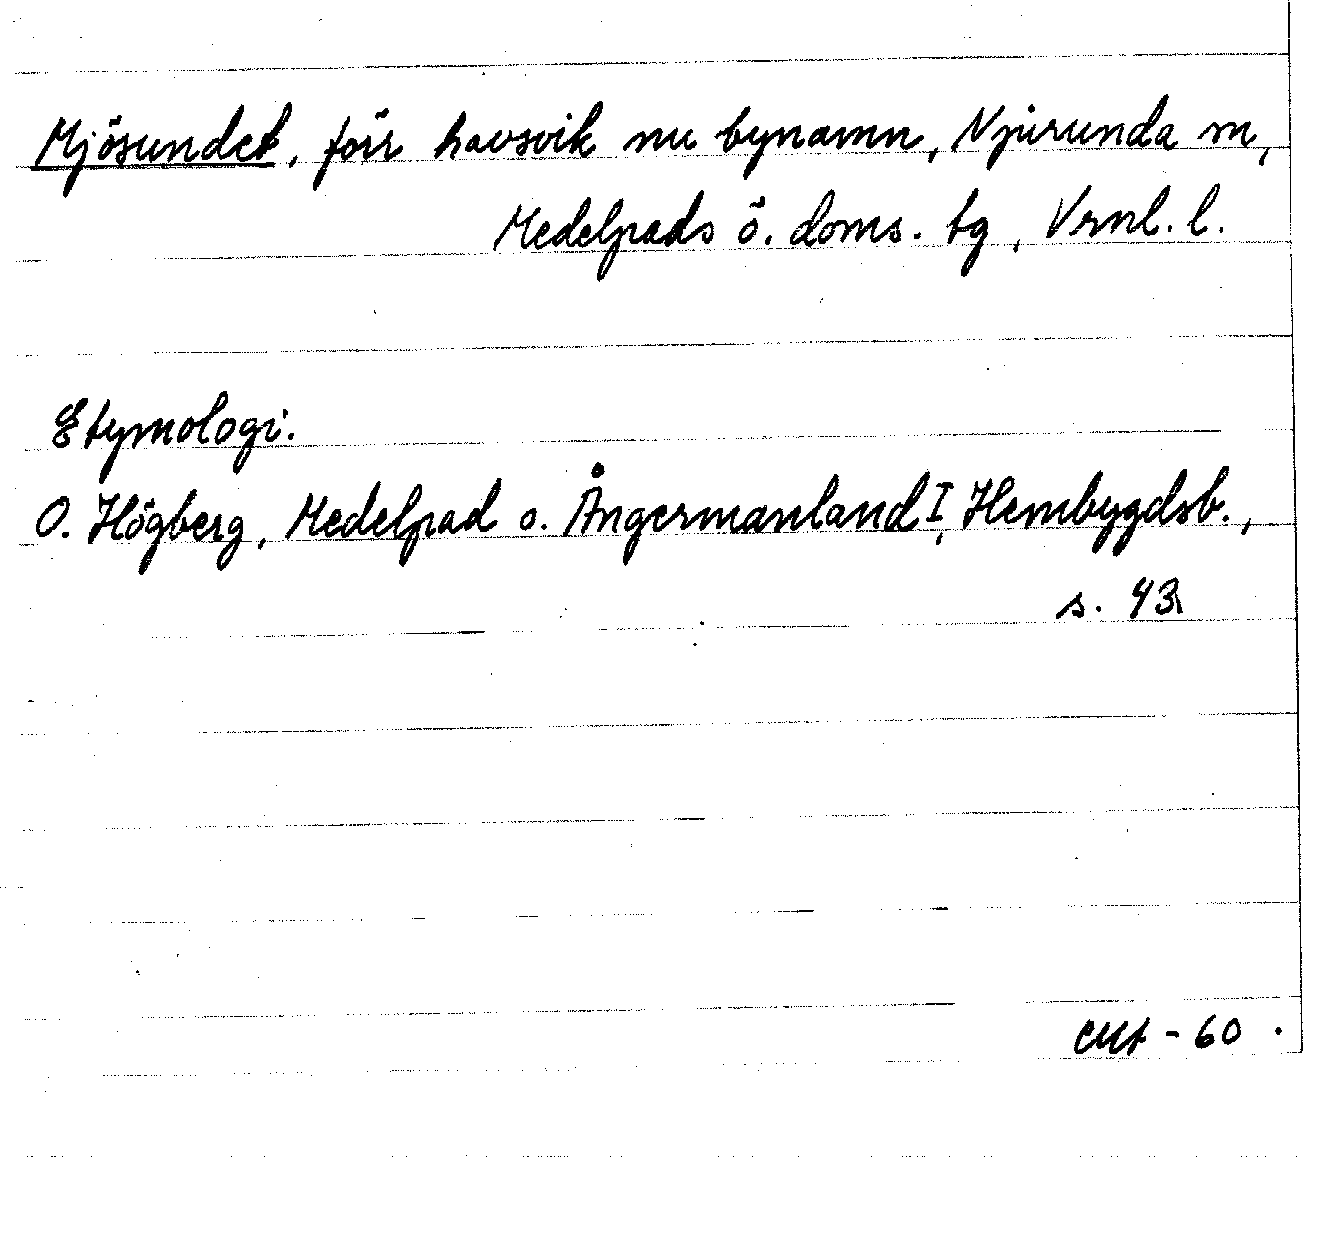 Mjösundet, förr havsvik nu bynamn, Njurunda sn,
Medelpads ö. doms. tg, Vrnl. l.
Etymologi.
O. Högberg, Medelpad o. Ångermanland I, Hembygdsb.,
s. 43
-60.